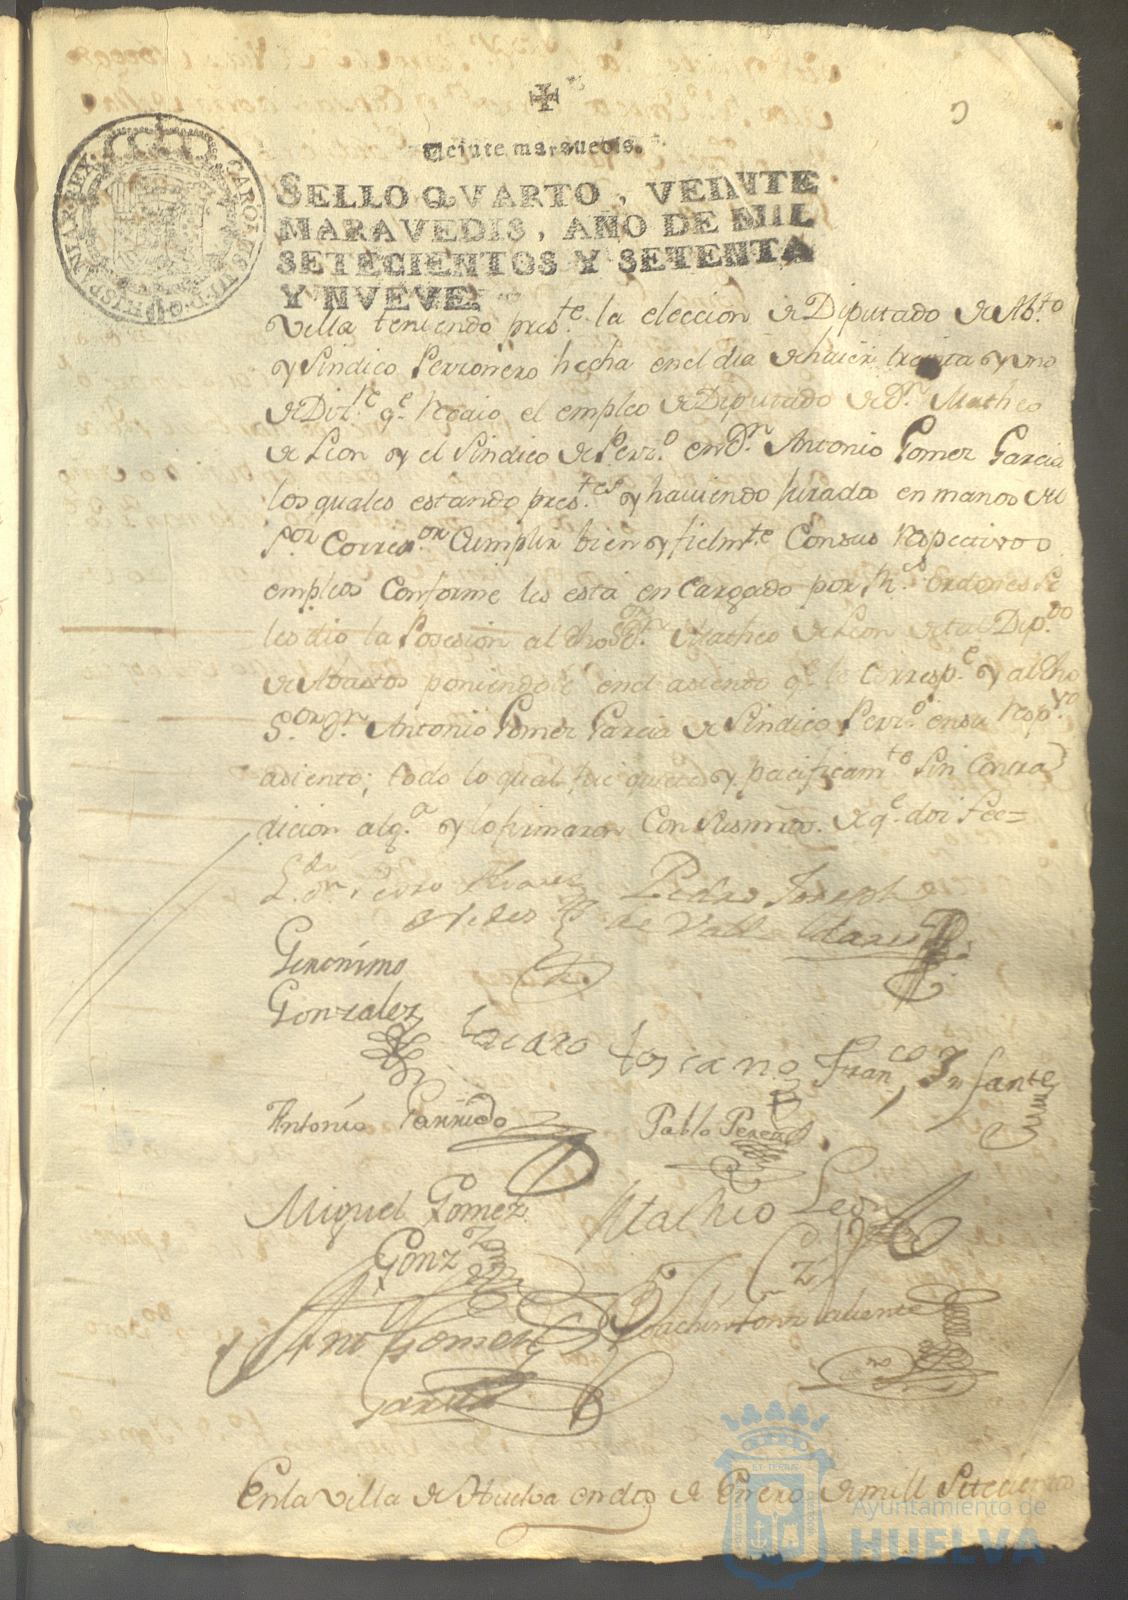 Veinte marauedis.
SELLO QVARTO, VEINTE
MARAVEDIS, AÑO DE MIL
SETECIENTOS Y SETENTA
Y NVEVE.
CAROLUS III D G HISPANIAR REX
Villa teniendo pres.te la eleccion de Diputado de Ab.to
y Sindico Perzonero hecha en el dia de haier treinta y uno
de Diz.re q.e recaio el empleo de Diputado de D.n Matheo
de Leon y el Sindico de Perz.o en D.n Antonio Gomez Garcia
los quales estando pres.tes y haviendo jurado en manos del
S.or Corre.or Cumplir bien y fielm.te Con sus respectivos
empleos Conforme les está encargado por R.s ordenes se
les dio la Posesion al dho S.or D.n Matheo de Leon de tal Dip.do
de Abastos poniendole en el asiento q.e le corresp.e y al dho
S.or D.n Antonio Gomez Garcia de Sindico Perz.o en su resp.vo
asiento; todo lo qual fue quieta y pacificam.te Sin Contra
dicion alg.a y lo firmaron Con su mrd. de q.e doi fee=
Pedro Joseph
de Valladares
Geronimo
Gonzalez
Lazaro toscano
Fran.co Infante
Antonio Garrido
Pablo Perez
Miguel Gomez
Gonz.z
Matheo Leon
Ant Gomez
Garcia
Joachin Valiente
En la villa de Huelva en dos de Enero de mill Setecientos
Ayuntamiento de
HUELVA